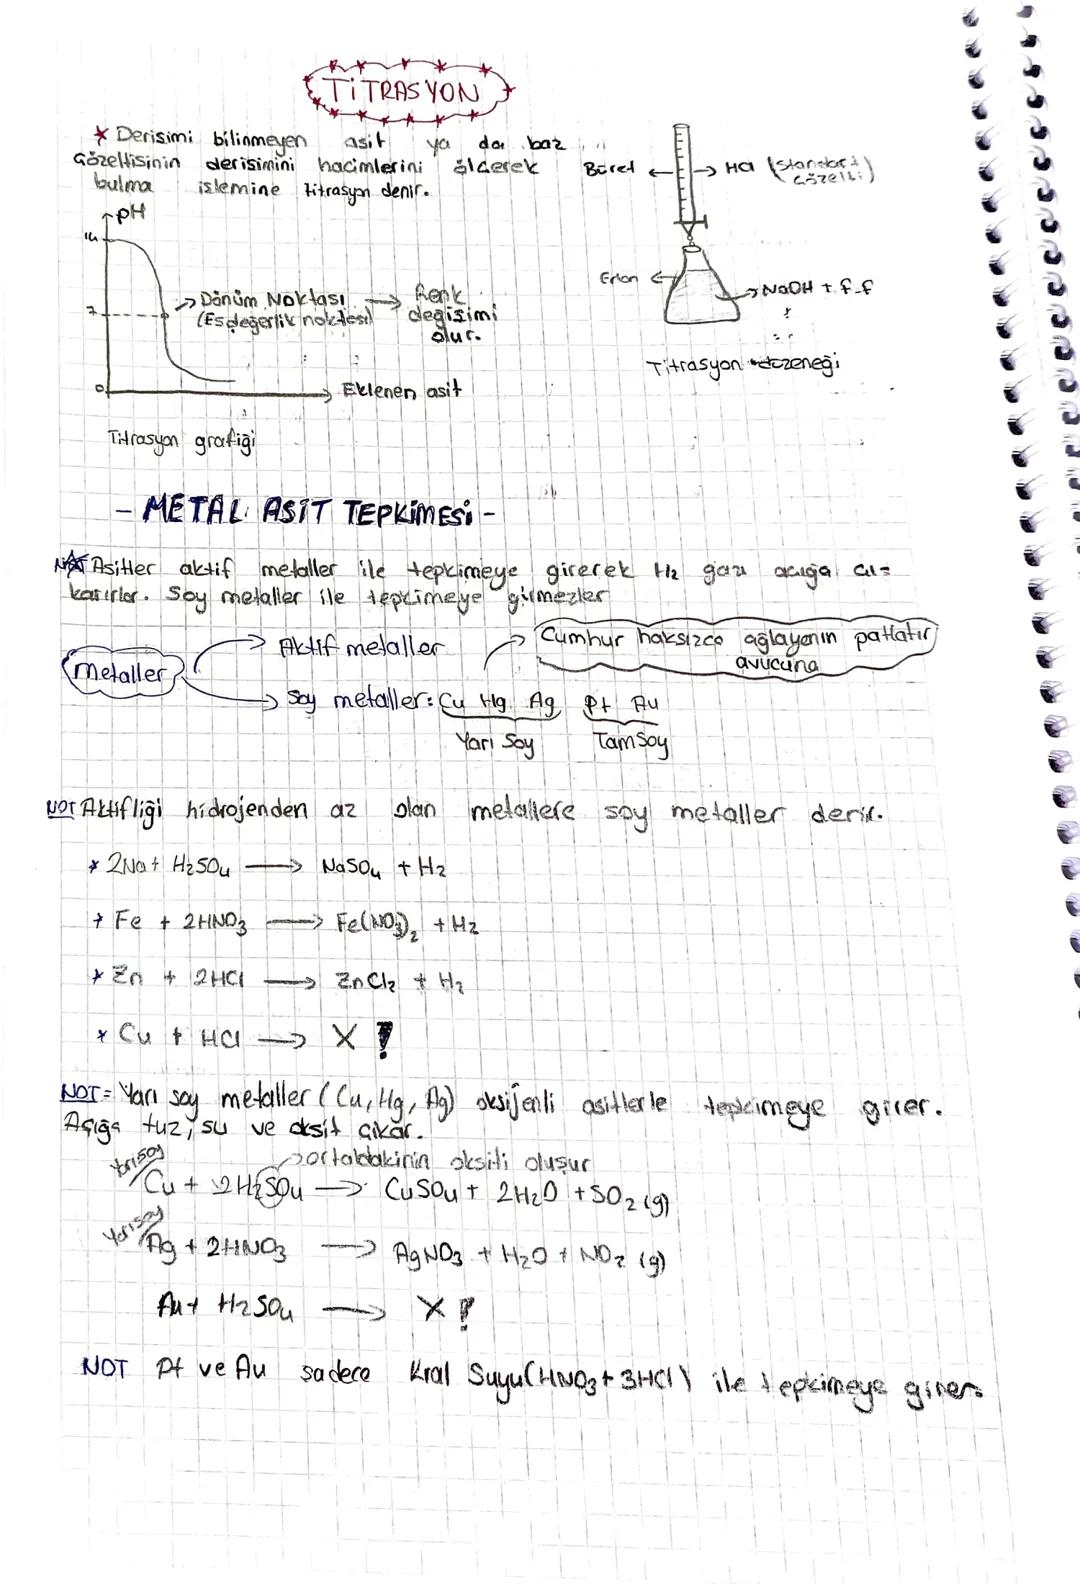 TİTRASYON
* Derişimi bilinmeyen asit ya da baz
çözeltisinin derişimini hacimlerini ölçerek
bulma işlemine titrasyon denir.
Büret
HCl (Standart çözelti)
Erlen
NaOH + f.f
Titrasyon düzeneği
pH
14
7
0
Dönüm Noktası
(Eşdeğerlik noktası)
Renk
değişimi
olur.
Eklenen asit
Titrasyon grafiği
- METAL ASİT TEPKİMESİ -
NOT Asitler aktif metaller ile tepkimeye girerek H₂ gazı açığa çı-
karırlar. Soy metaller ile tepkimeye girmezler
Metaller
Aktif metaller
Cumhur haksızca ağlayanın patlatır
avucuna
Soy metaller: Cu Hg Ag Pt Au
Yarı Soy
Tam Soy
NOT Aktifliği hidrojenden az olan metallere soy metaller denir.
* 2Na + H₂SO₄ → NaSO₄ + H₂
* Fe + 2HNO₃ → Fe(NO₃)₂ + H₂
* Zn + 2HCl → ZnCl₂ + H₂
* Cu + HCl → X !
NOT= Yarı soy metaller (Cu, Hg, Ag) oksijenli asitlerle tepkimeye girer.
Açığa tuz, su ve oksit çıkar.
ortadakinin oksiti oluşur
Yarısoy
Cu + 2H₂SO₄ → CuSO₄ + 2H₂O + SO₂ (g)
Yarısoy
Ag + 2HNO₃ → AgNO₃ + H₂O + NO₂ (g)
Au + H₂SO₄ → X !
NOT Pt ve Au sadece Kral Suyu (HNO₃ + 3HCl) ile tepkimeye girer.